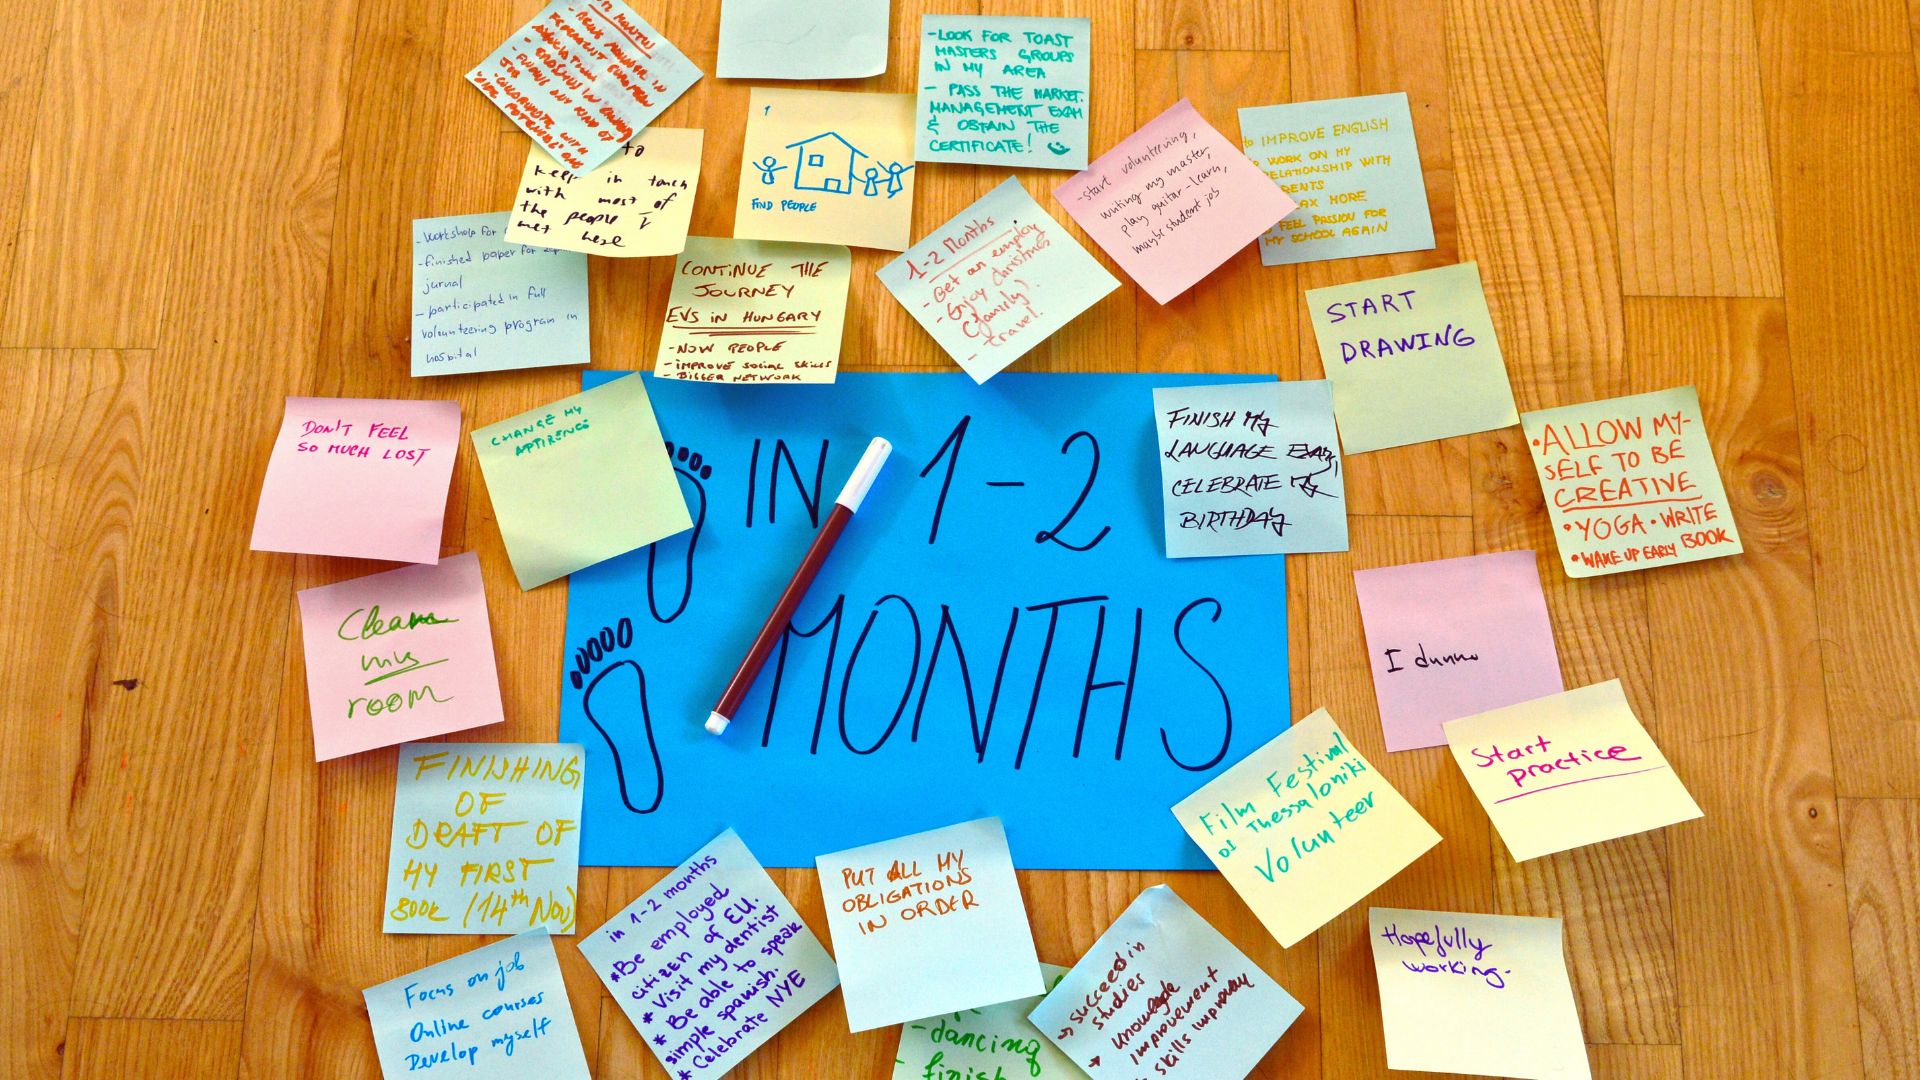 IN 1-2
MONTHS
12 MONTHS
FIND ANY KIND OF
JOB
1
FIND PEOPLE
-LOOK FOR TOAST
MASTERS GROUPS
IN MY AREA
- PASS THE MARKET.
MANAGEMENT EXAM
& OBTAIN THE
CERTIFICATE!
-start volunteering,
writing my master,
play guitar-learn,
maybe student job
to IMPROVE ENGLISH
WORK ON MY
RELATIONSHIP WITH
RENTS
AX MORE
FEEL PASSION FOR
MY SCHOOL AGAIN
to
keep in touch
with most of
the people I
met here
-Workshop for
-finished paper for
jurnal
- participated in full
volunteering program in
hospital
CONTINUE THE
JOURNEY
EVS IN HUNGARY
-NOW PEOPLE
-IMPROVE SOCIAL SKILLS
- BIGGER NETWORK
1-2 Months
- Get an employ
- Enjoy Christmas
(family).
- travel.
START
DRAWING
FINISH MY
LANGUAGE EXAM,
CELEBRATE MY
BIRTHDAY
•ALLOW MY-
SELF TO BE
CREATIVE
•YOGA •WRITE
•WAKE UP EARLY BOOK
DON'T FEEL
SO MUCH LOST
CHANGE MY
APTIRENCE
Clean
my
room
I dunno
Start
practice
FINISHING
OF
DRAFT OF
MY FIRST
BOOK (14th Nov)
Film Festival
of Thessaloniki
Volunteer
in 1-2 months
*Be employed
citizen of EU.
* Visit my dentist
* Be able to speak
simple spanish.
* Celebrate NYE
PUT ALL MY
OBLIGATIONS
IN ORDER
Hopefully
working.
Focus on job
Online courses
Develop myself
-dancing
- finish
→ succeed in
studies
→ knowledge
improvement
→ skills improvem